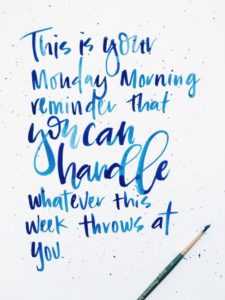 This is your
Monday Morning
reminder that
you can
handle
whatever this
week throws at
you.